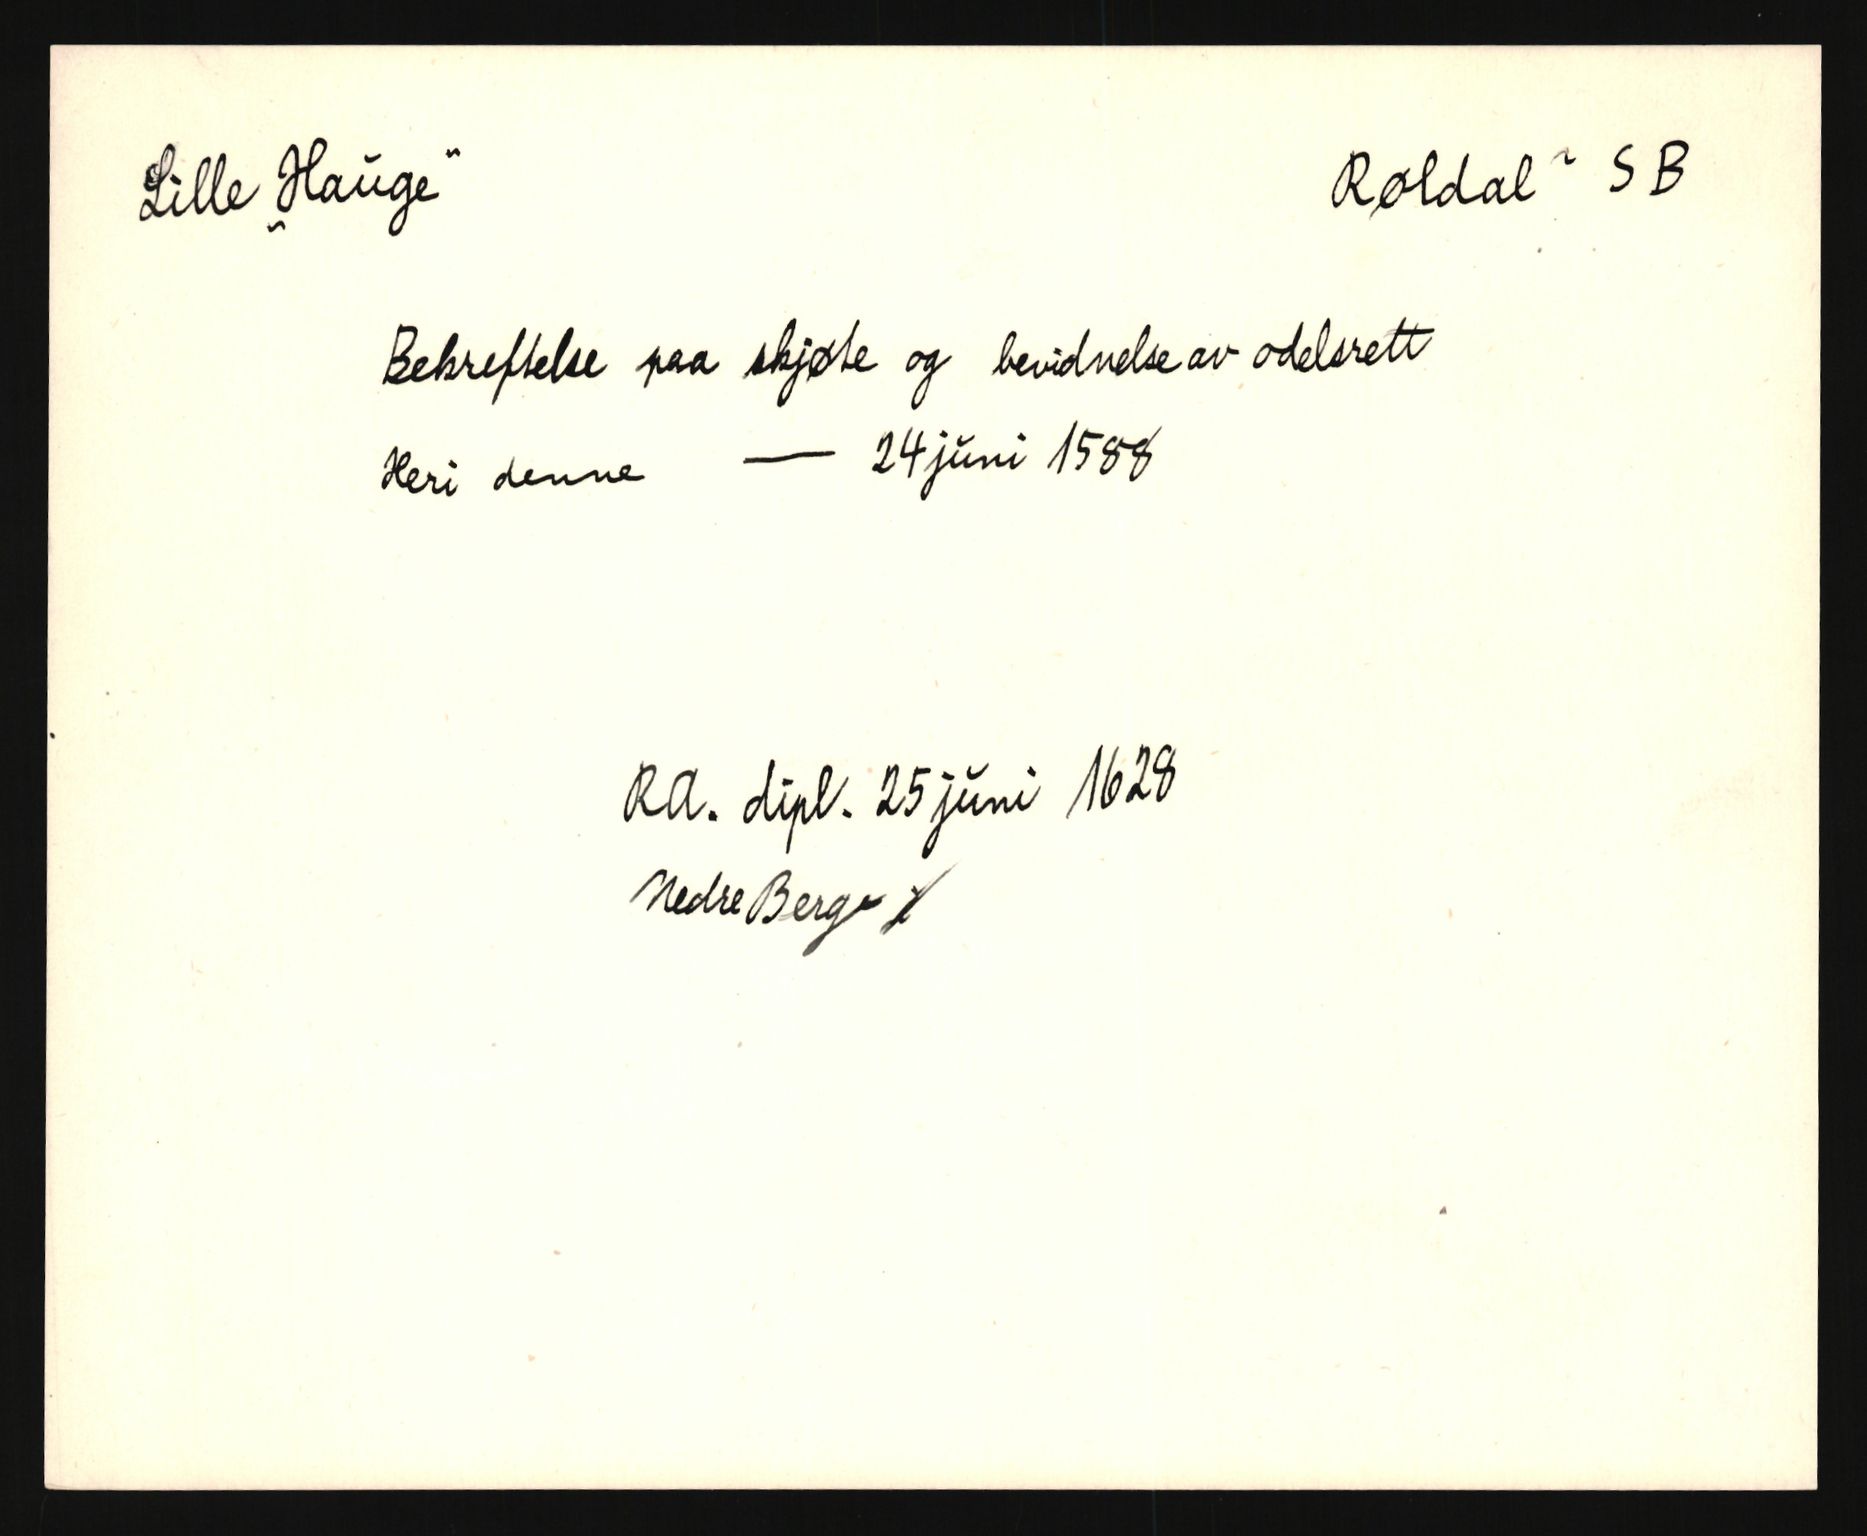 Lille „Hauge" Røldal ~ S B
Bekreftelse paa skjøte og bevidnelse av odelsrett
Heri denne — 24 juni 1588
RA. dipl. 25 juni 1628
Nedre Berge